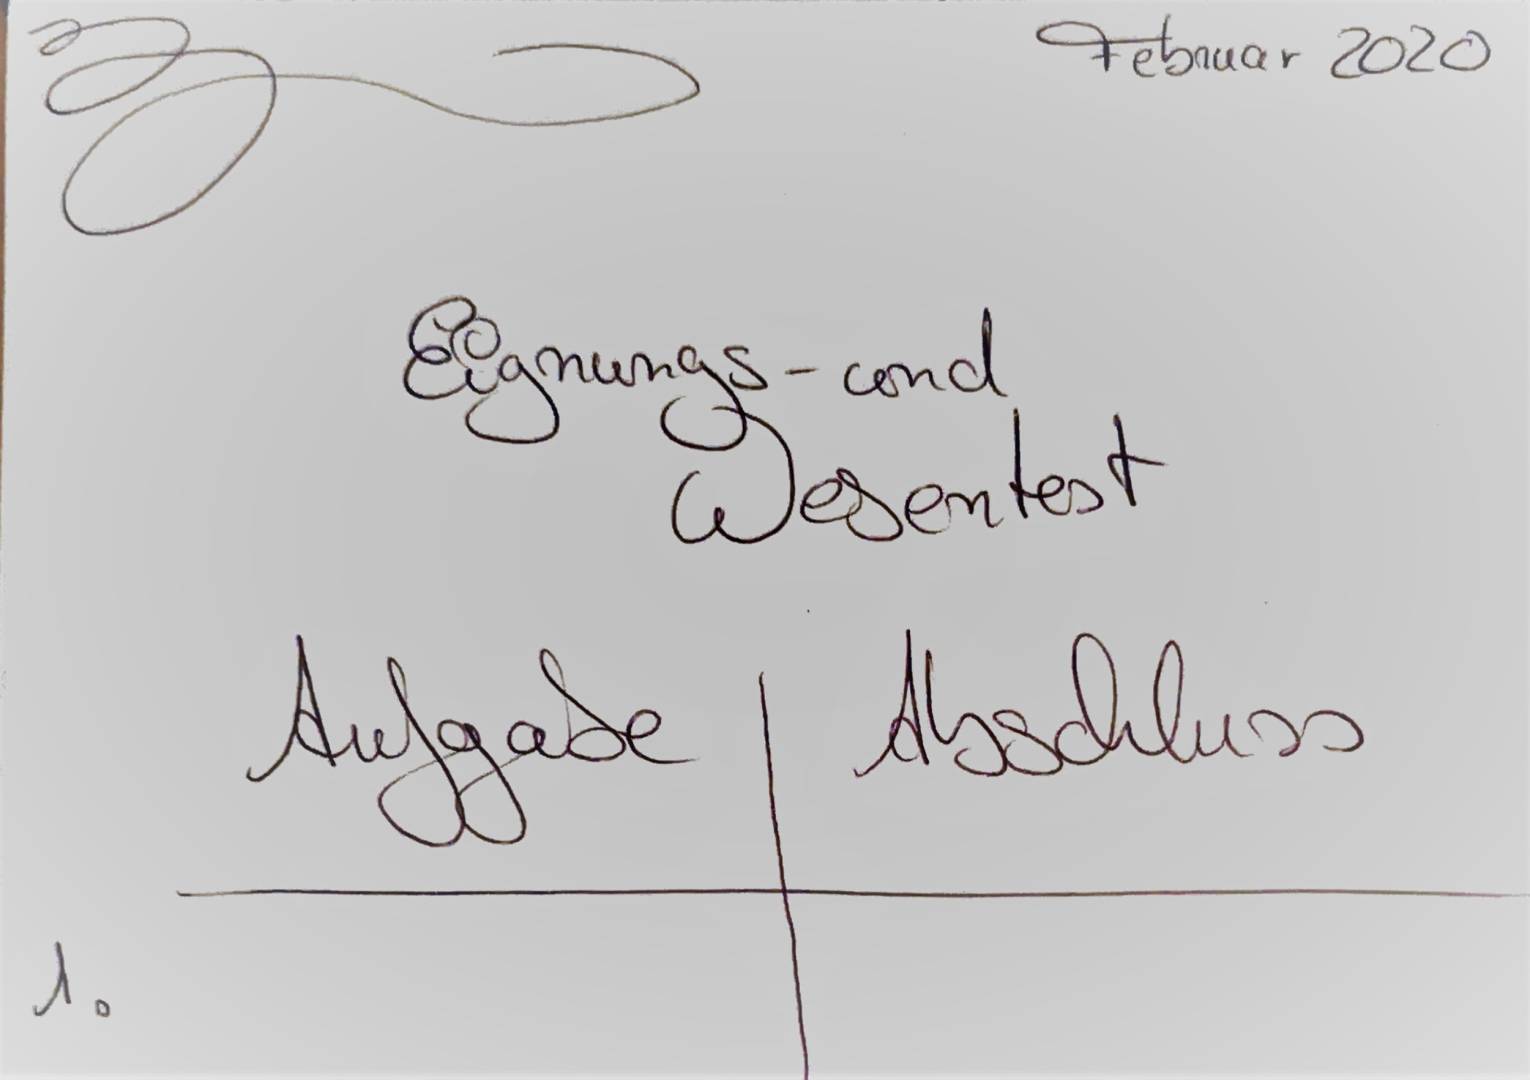 Februar 2020
Eignungs-und
Wesentest
Aufgabe Abschluss
1.